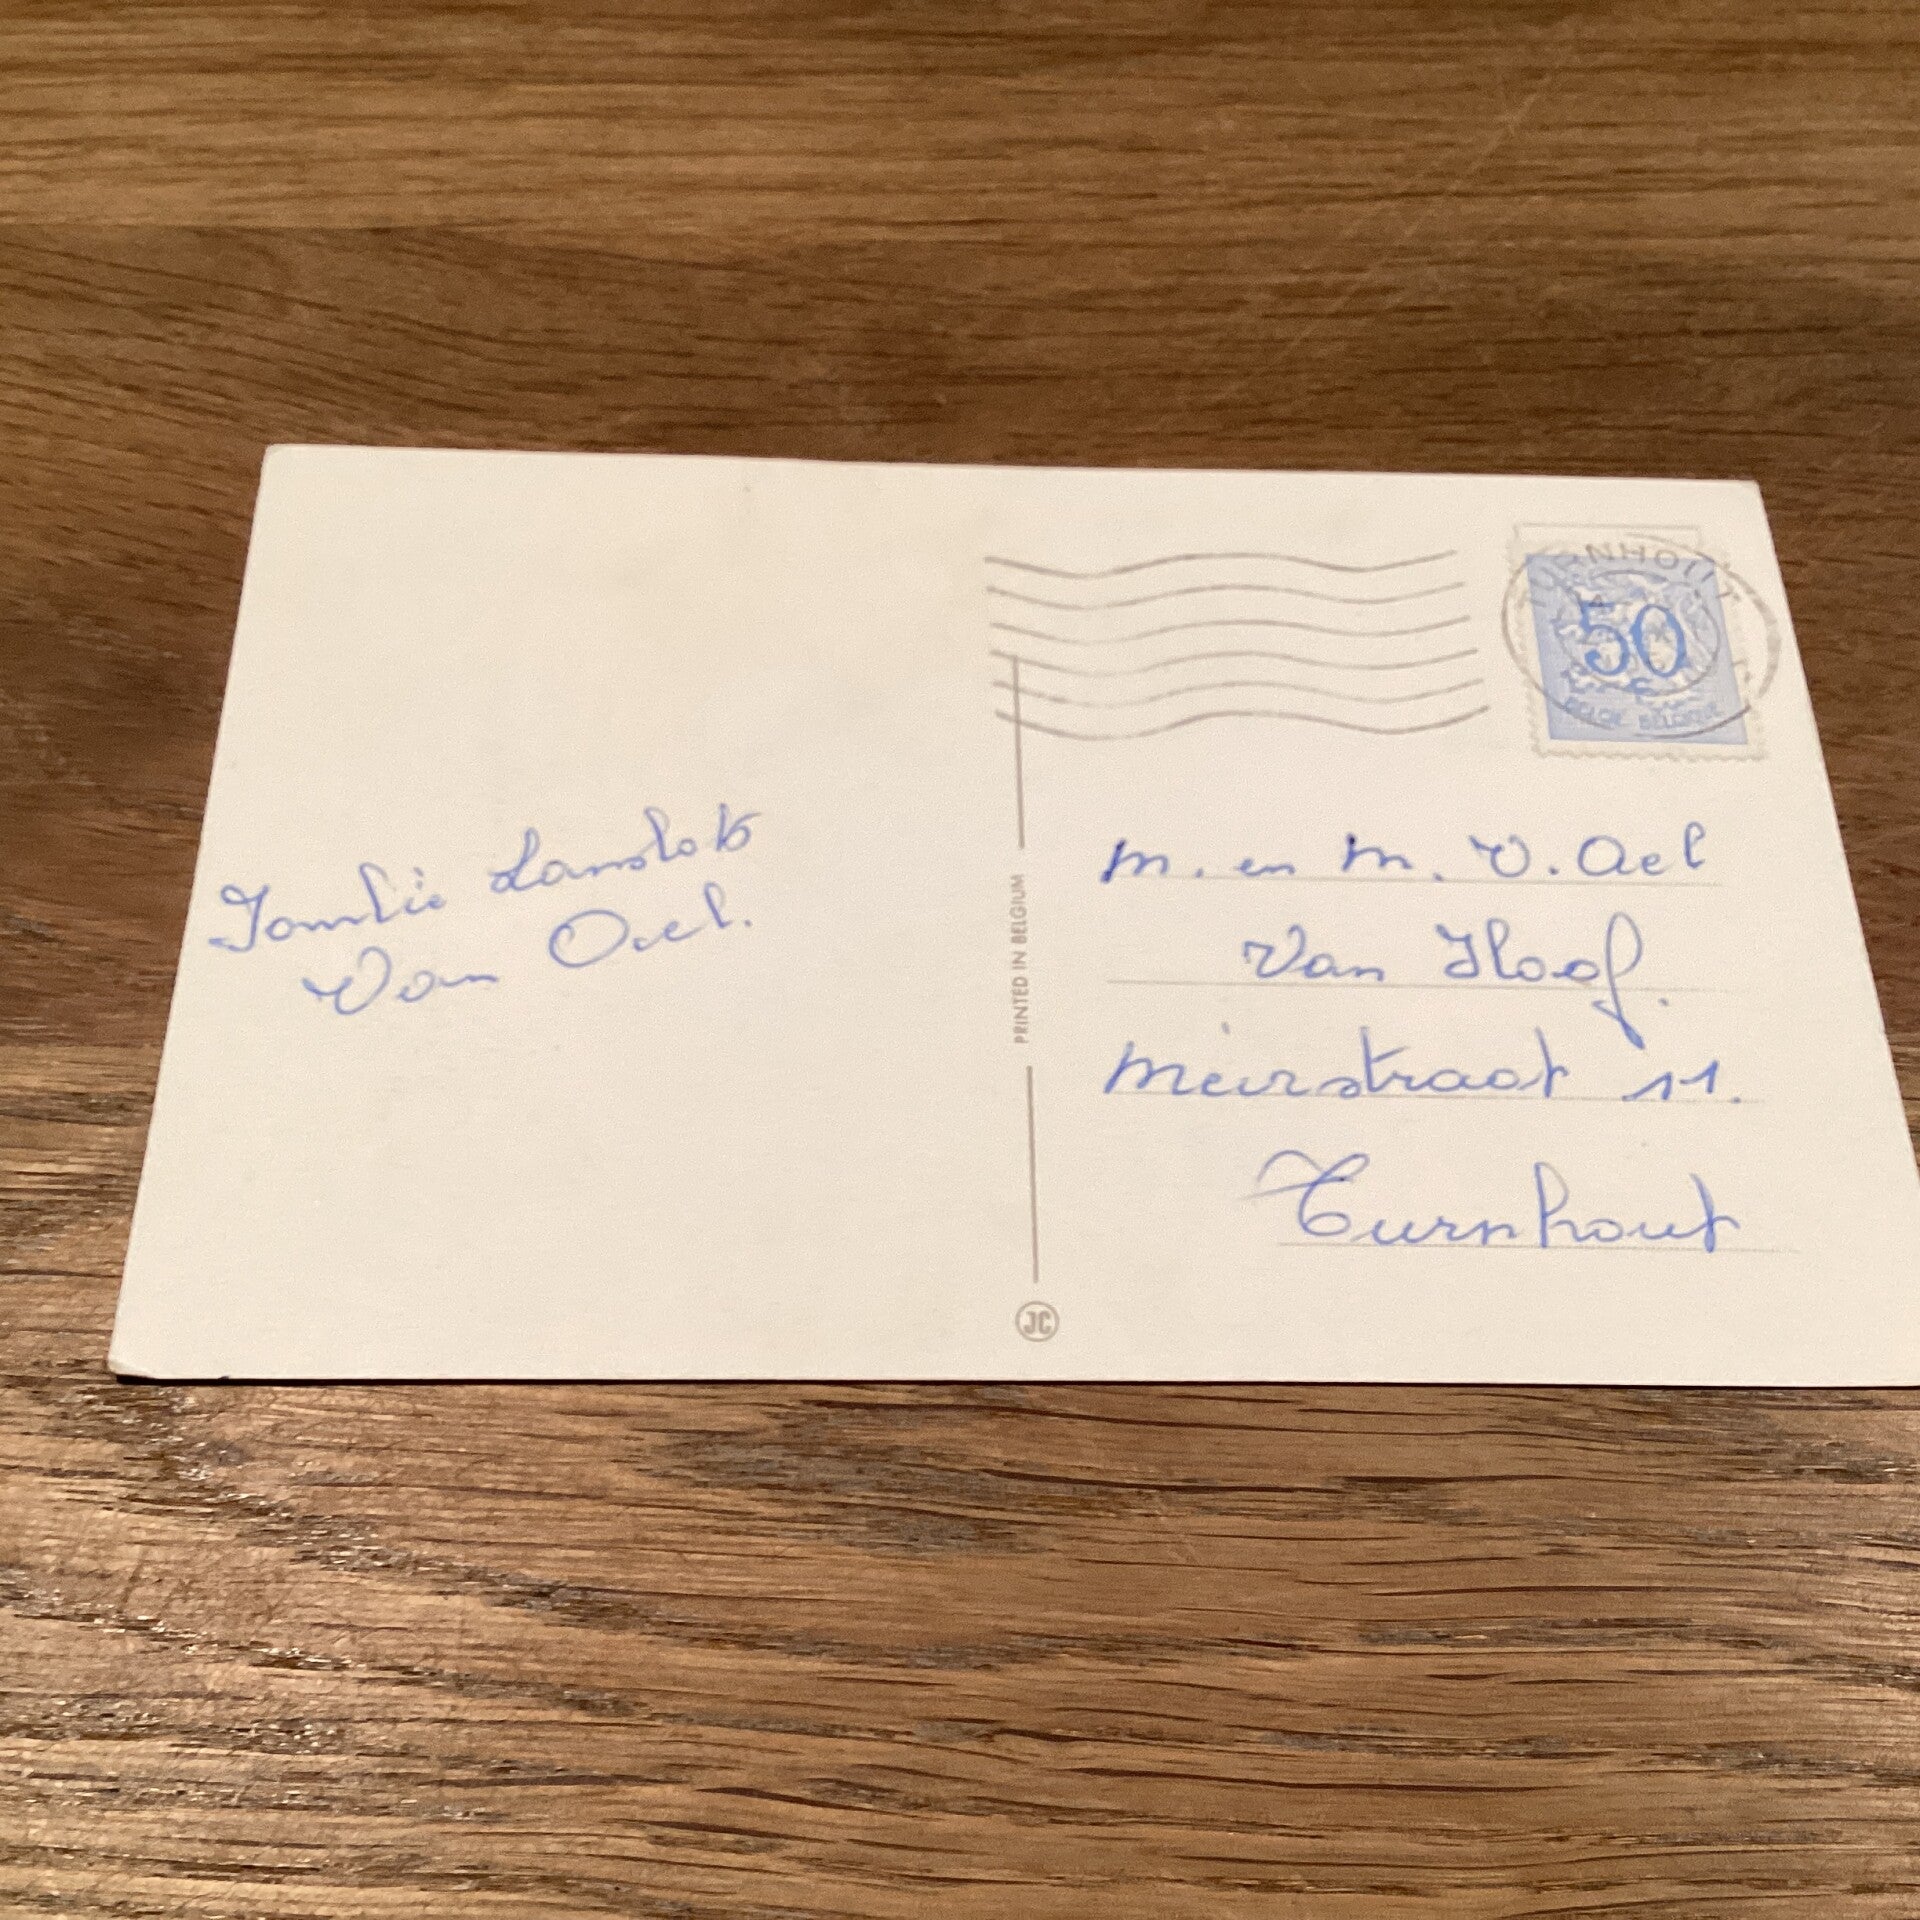 Familie Lanslots
Van Ael.
TURNHOUT
50
BELGIË BELGIQUE
PRINTED IN BELGIUM
JC
M. en M. V. Ael
Van Hoof.
Meirstraat 11.
Turnhout